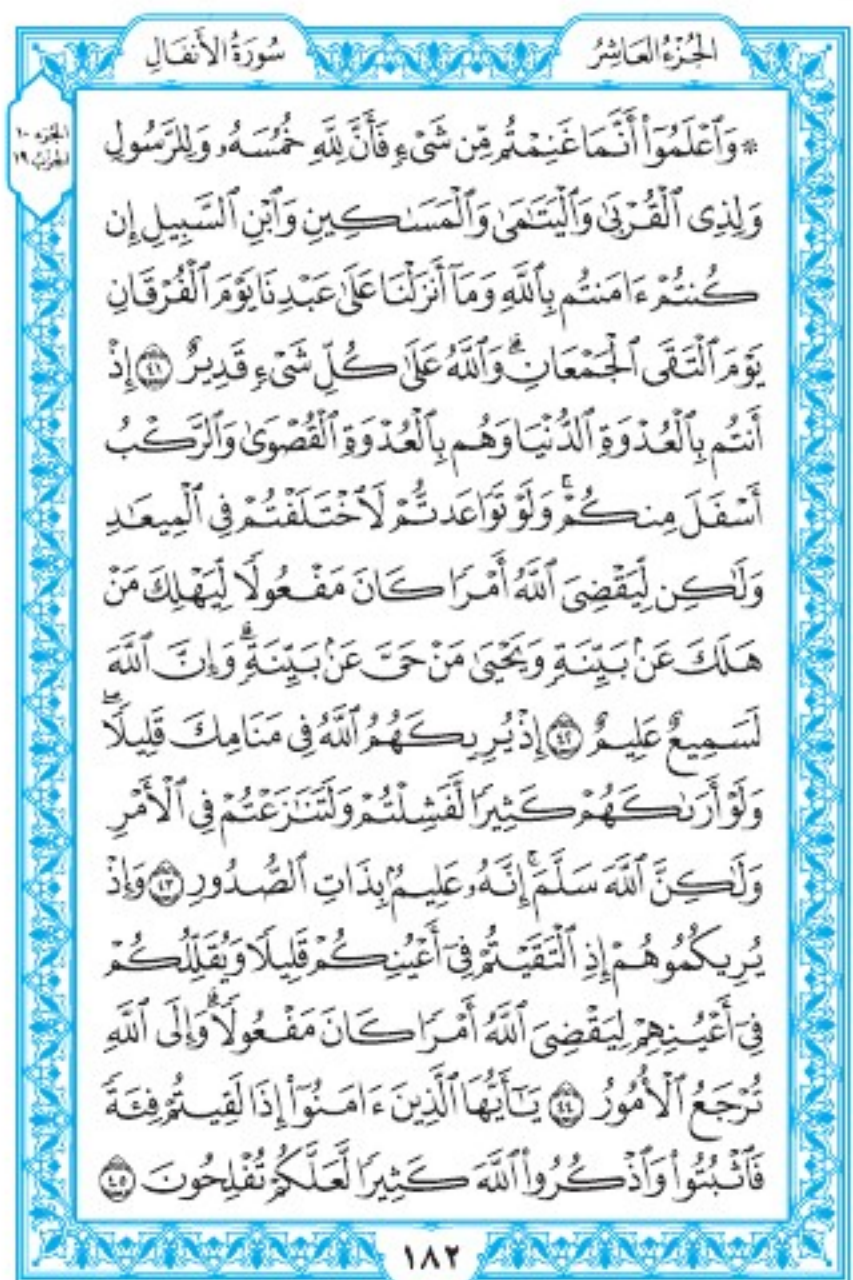 سُورَةُ الأَنفَالِ
الجُزْءُ العَاشِرُ
الجزء ١٠
الحزب ١٩
۞ وَٱعْلَمُوٓا۟ أَنَّمَا غَنِمْتُم مِّن شَىْءٍ فَأَنَّ لِلَّهِ خُمُسَهُۥ وَلِلرَّسُولِ
وَلِذِى ٱلْقُرْبَىٰ وَٱلْيَتَٰمَىٰ وَٱلْمَسَٰكِينِ وَٱبْنِ ٱلسَّبِيلِ إِن
كُنتُمْ ءَامَنتُم بِٱللَّهِ وَمَآ أَنزَلْنَا عَلَىٰ عَبْدِنَا يَوْمَ ٱلْفُرْقَانِ
يَوْمَ ٱلْتَقَى ٱلْجَمْعَانِ ۗ وَٱللَّهُ عَلَىٰ كُلِّ شَىْءٍ قَدِيرٌ ٤١ إِذْ
أَنتُم بِٱلْعُدْوَةِ ٱلدُّنْيَا وَهُم بِٱلْعُدْوَةِ ٱلْقُصْوَىٰ وَٱلرَّكْبُ
أَسْفَلَ مِنكُمْ ۚ وَلَوْ تَوَاعَدتُّمْ لَٱخْتَلَفْتُمْ فِى ٱلْمِيعَٰدِ
وَلَٰكِن لِّيَقْضِىَ ٱللَّهُ أَمْرًا كَانَ مَفْعُولًا لِّيَهْلِكَ مَنْ
هَلَكَ عَنۢ بَيِّنَةٍ وَيَحْيَىٰ مَنْ حَىَّ عَنۢ بَيِّنَةٍ ۗ وَإِنَّ ٱللَّهَ
لَسَمِيعٌ عَلِيمٌ ٤٢ إِذْ يُرِيكَهُمُ ٱللَّهُ فِى مَنَامِكَ قَلِيلًا ۖ
وَلَوْ أَرَىٰكَهُمْ كَثِيرًا لَّفَشِلْتُمْ وَلَتَنَٰزَعْتُمْ فِى ٱلْأَمْرِ
وَلَٰكِنَّ ٱللَّهَ سَلَّمَ ۗ إِنَّهُۥ عَلِيمٌۢ بِذَاتِ ٱلصُّدُورِ ٤٣ وَإِذْ
يُرِيكُمُوهُمْ إِذِ ٱلْتَقَيْتُمْ فِىٓ أَعْيُنِكُمْ قَلِيلًا وَيُقَلِّلُكُمْ
فِىٓ أَعْيُنِهِمْ لِيَقْضِىَ ٱللَّهُ أَمْرًا كَانَ مَفْعُولًا ۗ وَإِلَى ٱللَّهِ
تُرْجَعُ ٱلْأُمُورُ ٤٤ يَٰٓأَيُّهَا ٱلَّذِينَ ءَامَنُوٓا۟ إِذَا لَقِيتُمْ فِئَةً
فَٱثْبُتُوا۟ وَٱذْكُرُوا۟ ٱللَّهَ كَثِيرًا لَّعَلَّكُمْ تُفْلِحُونَ ٤٥
١٨٢